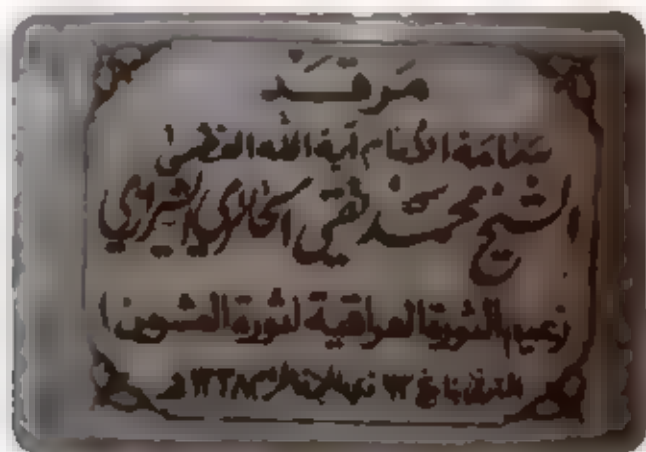 مَرقَد
سماحة الأمام آية الله العظمى
الشيخ محمد تقي الحائري الشيرازي
زعيم الثورة العراقية لثورة العشرين
المتوفى ذي ١٣٣٨هـ